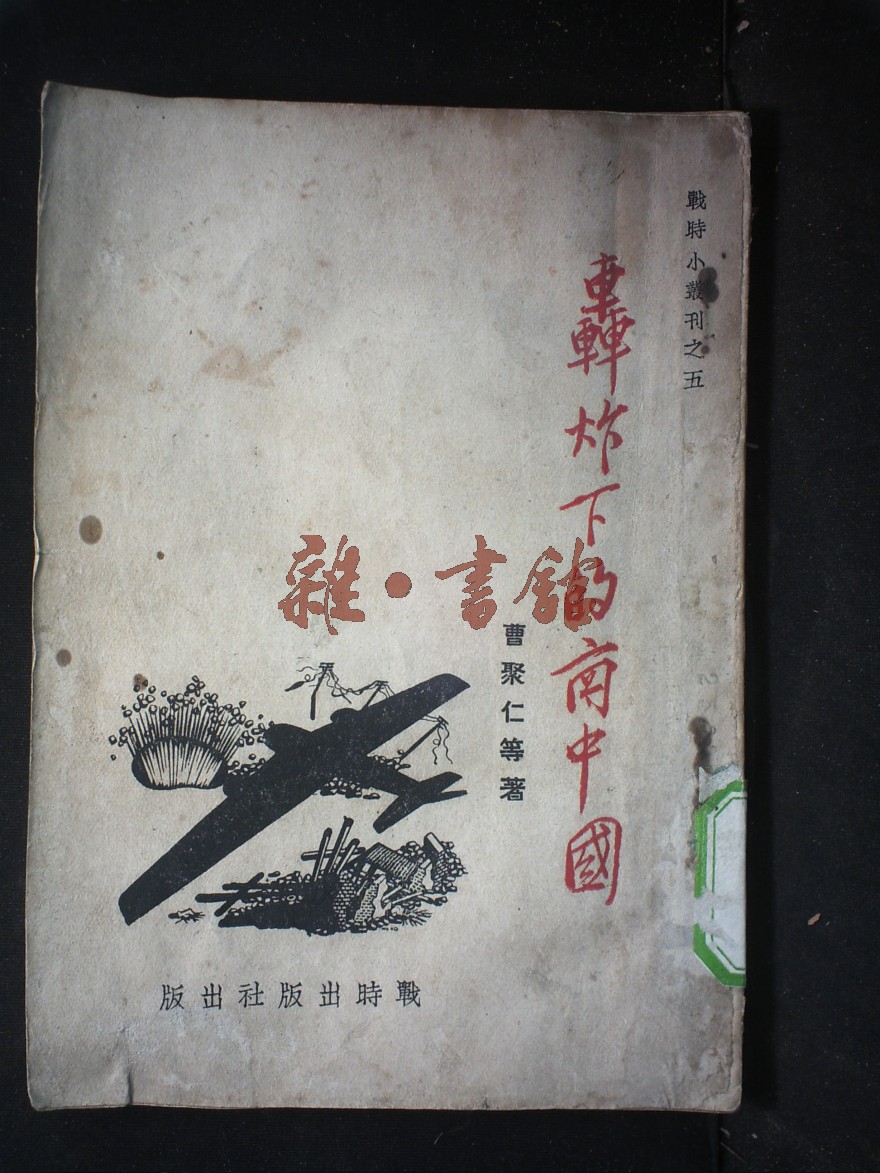 戰時小叢刊之五
轟炸下的南中國
曹聚仁等著
雜·書館
戰時出版社出版